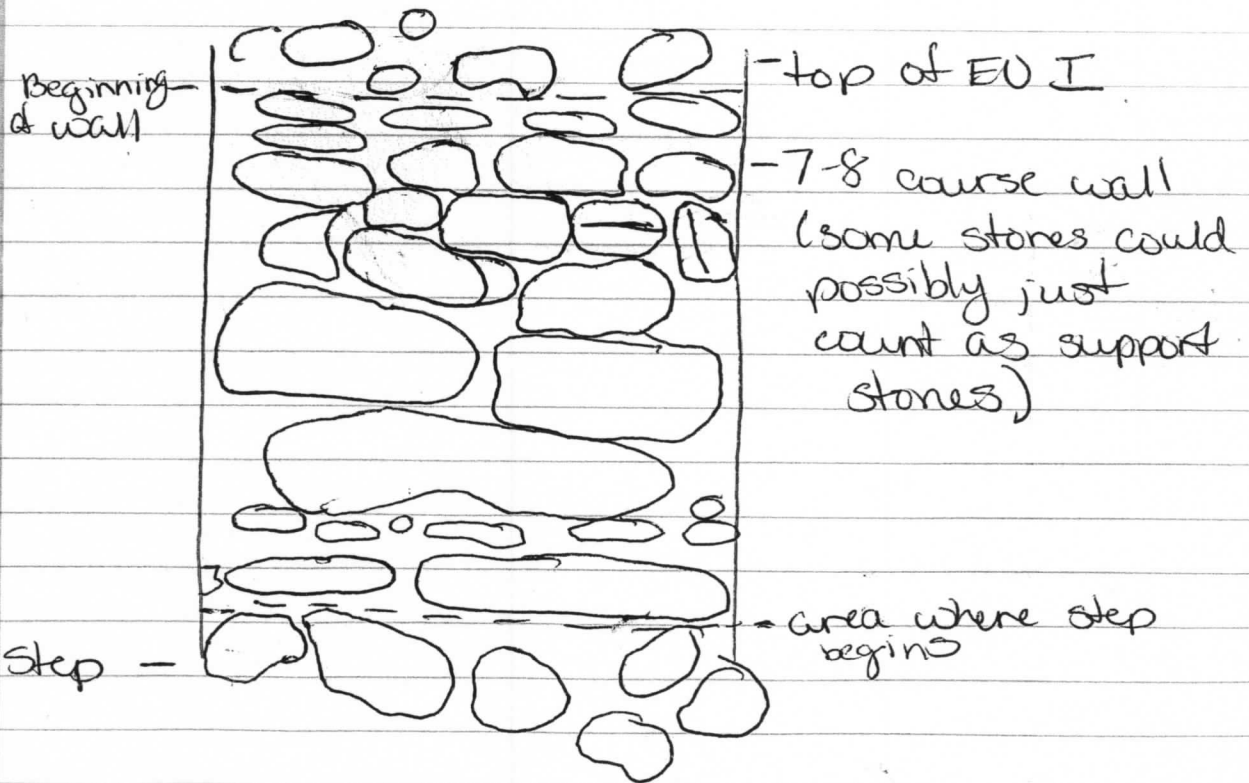 Beginning
of wall
-top of EU I
-7-8 course wall
(some stones could
possibly just
count as support
stones)
- area where step
begins
Step -